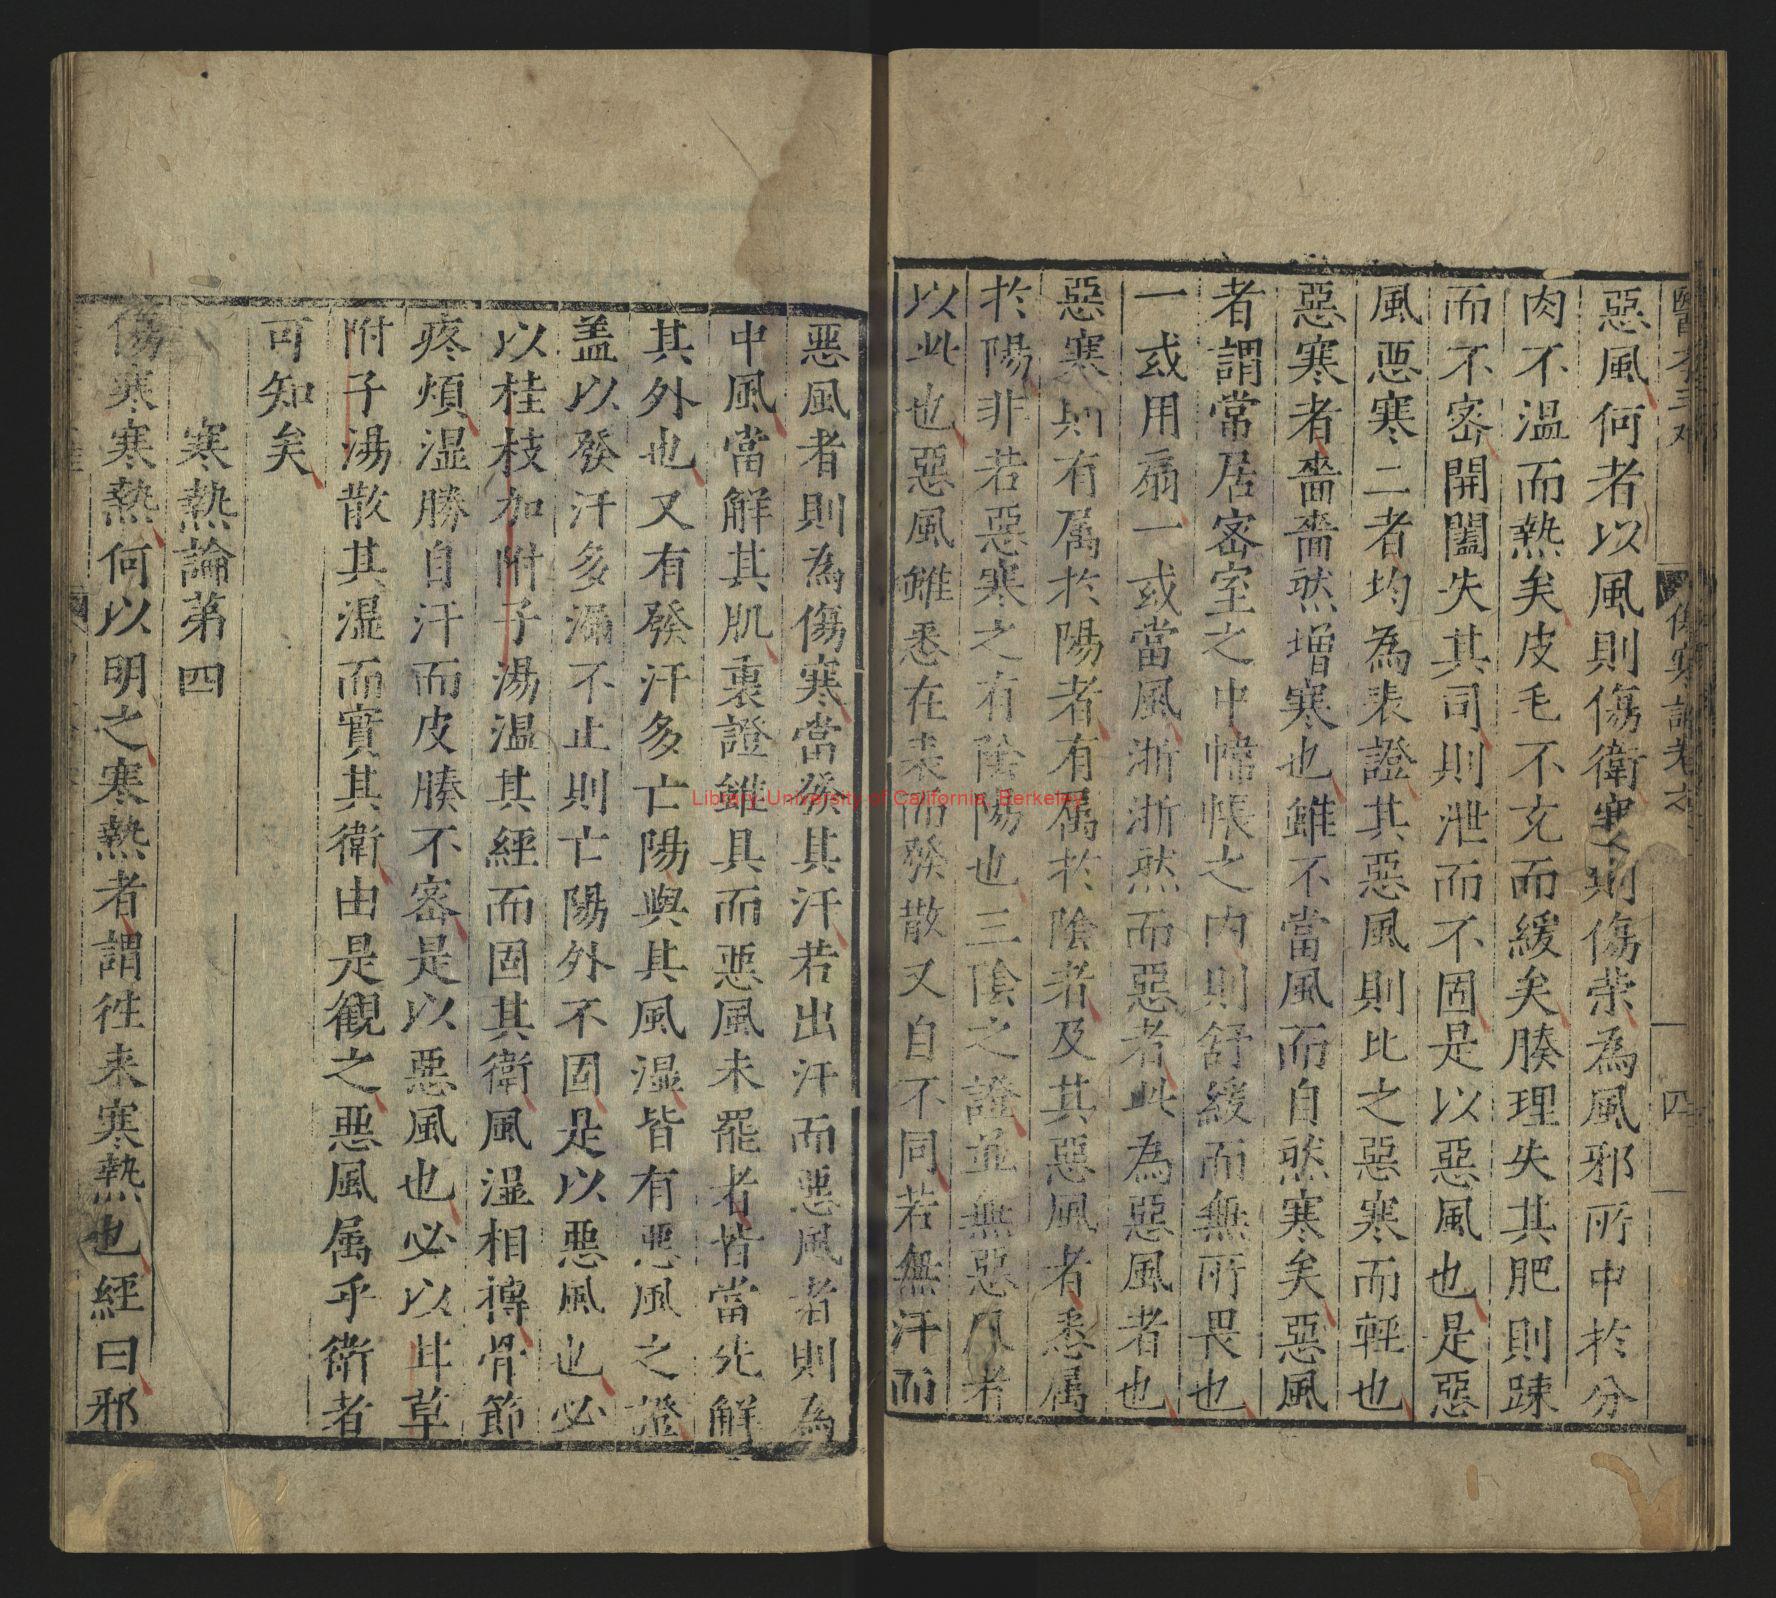 惡風何者以風則傷衛寒則傷荣為風邪所中於分
肉不温而熱矣皮毛不充而緩矣腠理失其肥則踈
而不宻開闔失其司則泄而不固是以惡風也是惡
風惡寒二者均為表證其惡風則比之惡寒而軽也
惡寒者嗇嗇然增寒也雖不當風而自然寒矣惡風
者謂常居宻室之中幃帳之内則舒緩而無所畏也
一或用扇一或當風淅淅然而惡者此為惡風者也
惡寒則有属於陽者有属於陰者及其惡風者悉属
於陽非若惡寒之有陰陽也三陰之證並無惡風者
以此也惡風雖悉在表而發散又自不同若無汗而
惡風者則為傷寒當發其汗若出汗而惡風者則為
中風當解其肌裏證雖具而惡風未罷者皆當先解
其外也又有發汗多亡陽與其風湿皆有惡風之證
盖以發汗多漏不止則亡陽外不固是以惡風也必
以桂枝加附子湯温其經而固其衛風湿相搏骨節
疼煩湿勝自汗而皮腠不宻是以惡風也必以甘草
附子湯散其湿而實其衛由是觀之惡風属乎衛者
可知矣
寒熱論第四
傷寒寒熱何以明之寒熱者謂徃来寒熱也經曰邪
四
Library, University of California, Berkeley